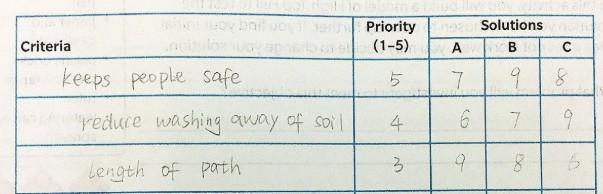 Priority Solutions
Criteria (1–5) A B C
keeps people safe 5 7 9 8
reduce washing away of soil 4 6 7 9
Length of path 3 9 8